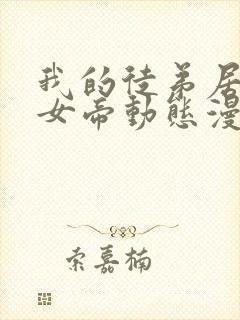 我的徒弟居
女帝動態漫
索嘉楠